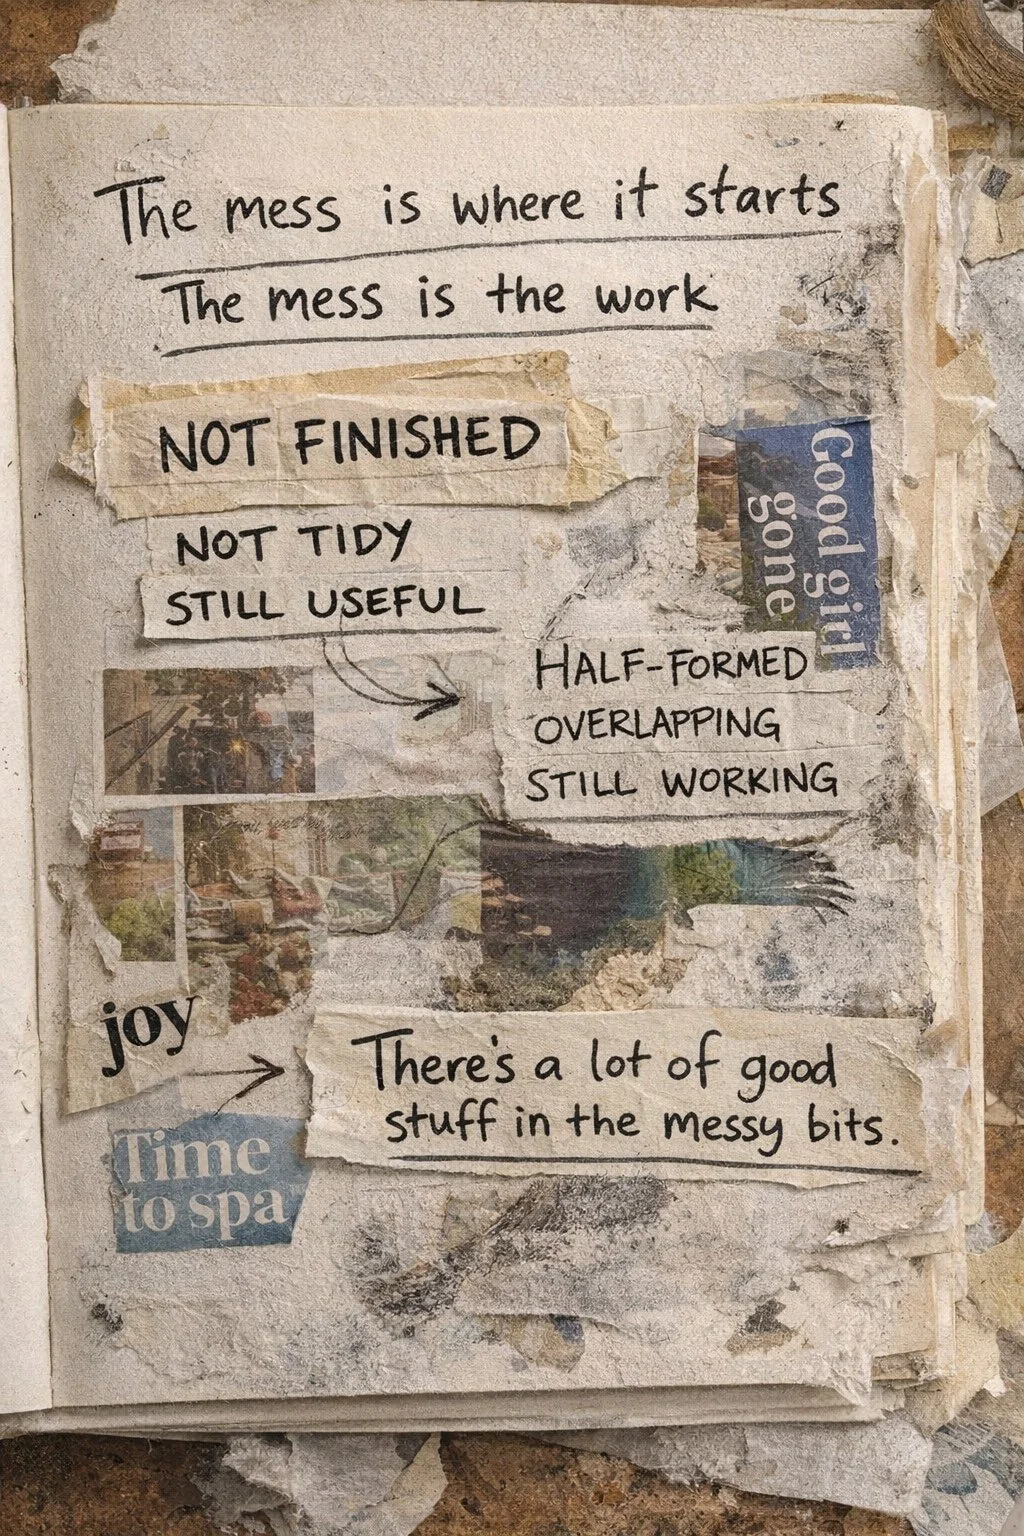 The mess is where it starts
The mess is the work
NOT FINISHED
NOT TIDY
STILL USEFUL
Good girl
gone
HALF-FORMED
OVERLAPPING
STILL WORKING
joy
There's a lot of good
stuff in the messy bits.
Time
to spa